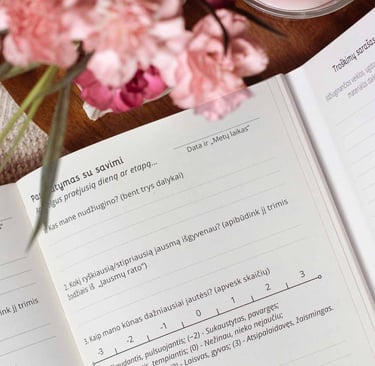 Data ir „Metų laikas“
savimi
praėjusią dieną ar etapą...
Kas mane nudžiugino? (bent trys dalykai)
2. Kokį ryškiausią/stipriausią jausmą išgyvenau? (apibūdink jį trimis
žodžiais iš „Jausmų rato“)
3. Kaip mano kūnas dažniausiai jautėsi? (apvesk skaičių)
-3 -2 -1 0 1 2 3
pulsuojantis; (-2) - Sukaustytas, pavargęs;
tempiantis; (0) - Nežinau, nieko nejaučiu;
- Laisvas, gyvas; (3) - Atsipalaidavęs, žaismingas.
ink jį trimis
Troškimų sąrašas